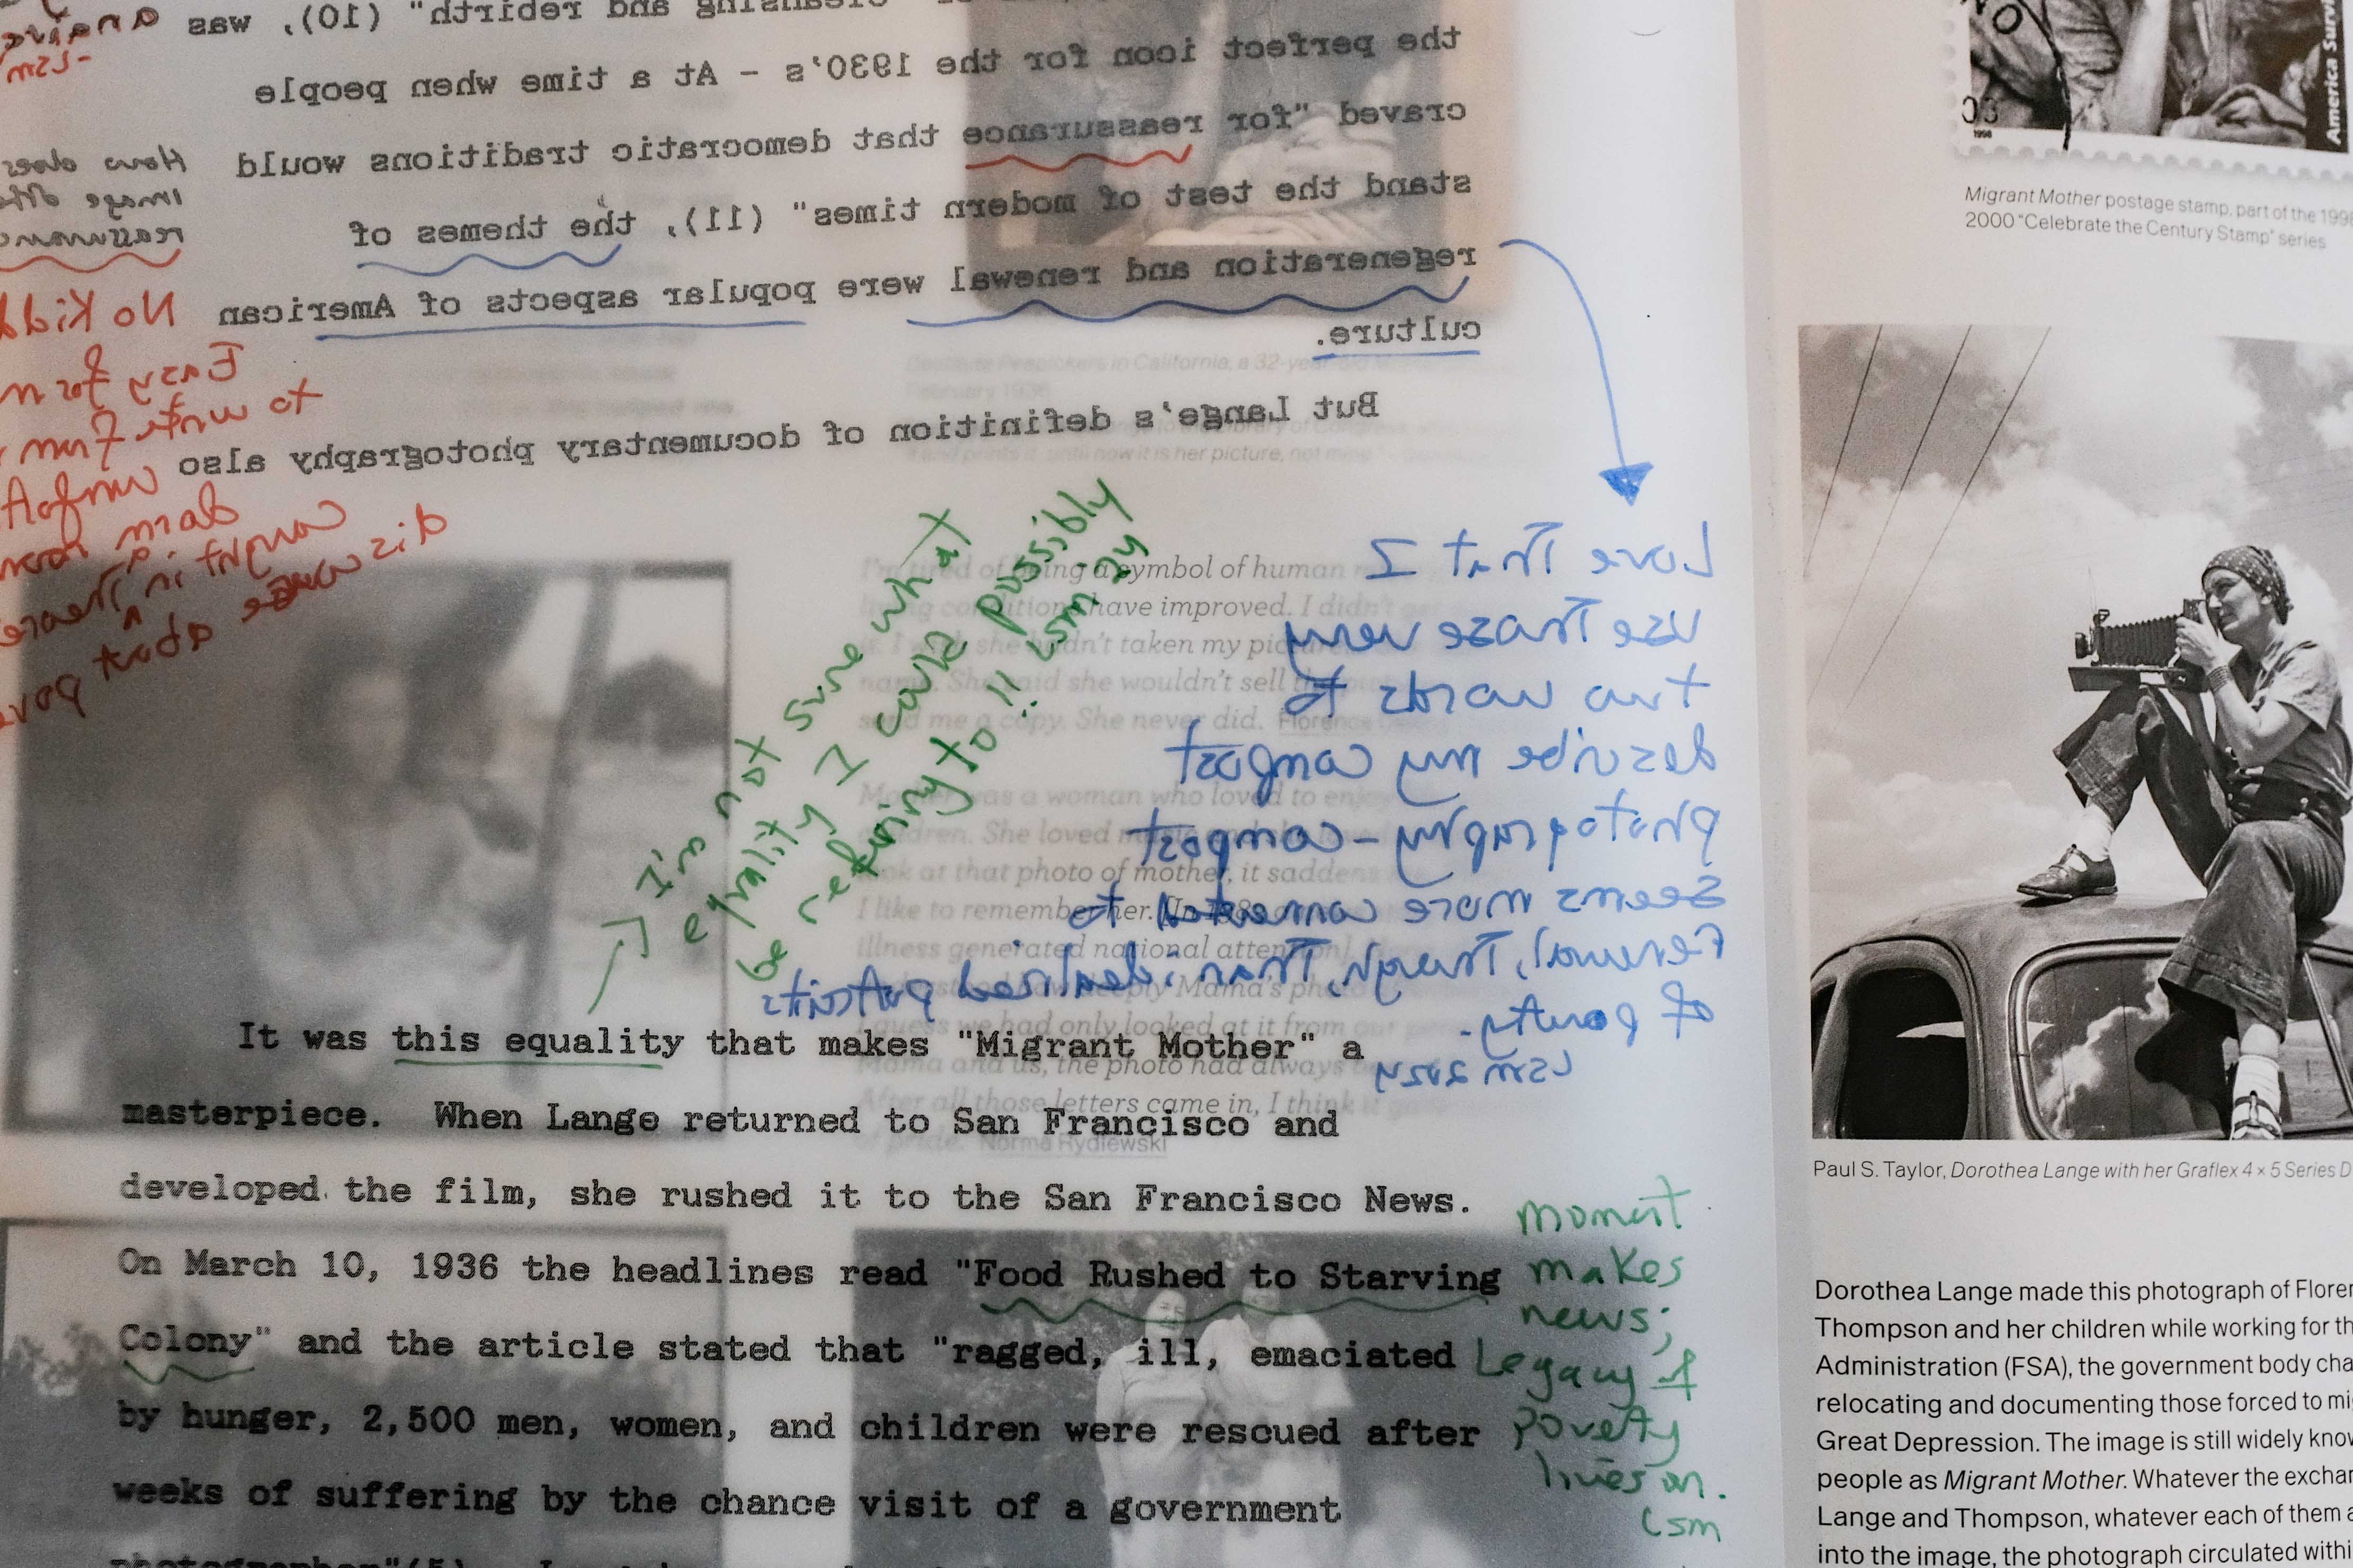 cleansing and rebirth" (10), was
the perfect icon for the 1930's - At a time when people
craved "for reassurance that democratic traditions would
stand the test of modern times" (11), the themes of
regeneration and renewal were popular aspects of American
culture.
But Lange's definition of documentary photography also
a naive
-LSM
How does
image
reassurance
No Kidd
Easy for m
to write from
comfort
dorm room
caught in
discourse about pove
Love That I
use these very
two words to
describe my compost
photography - compost
seems more connected to
renewal, though, than idealized portraits
of poverty.
LSM 2024
I'm not sure what
equality I could possibly
be referring to!! LSM 24
in California, a 32-year-old
February 1936
it is her picture, not
I'm tired of being a symbol of human
living conditions have improved. I didn't
she hadn't taken my pic
name. She said she wouldn't sell the
send me a copy. She never did. Florence
Mother was a woman who loved to enjoy
children. She loved
look at that photo of mother, it saddens
I like to remember her. [In 198
illness generated national attention
deeply Mama's photo
guess we had only looked at it from our
Mama and us, the photo had always
After all those letters came in, I think
of pride. Norma Rydlewski
It was this equality that makes "Migrant Mother" a
masterpiece. When Lange returned to San Francisco and
developed the film, she rushed it to the San Francisco News.
On March 10, 1936 the headlines read "Food Rushed to Starving
Colony" and the article stated that "ragged, ill, emaciated
by hunger, 2,500 men, women, and children were rescued after
weeks of suffering by the chance visit of a government
photographer"(5).
moment
makes
news;
Legacy of
poverty
lives on.
LSM
NO
03
1998
America Surviv
Migrant Mother postage stamp, part of the 1998
2000 "Celebrate the Century Stamp" series
Paul S. Taylor, Dorothea Lange with her Graflex 4 × 5 Series D
Dorothea Lange made this photograph of Floren
Thompson and her children while working for th
Administration (FSA), the government body cha
relocating and documenting those forced to mi
Great Depression. The image is still widely know
people as Migrant Mother. Whatever the exchan
Lange and Thompson, whatever each of them a
into the image, the photograph circulated withi